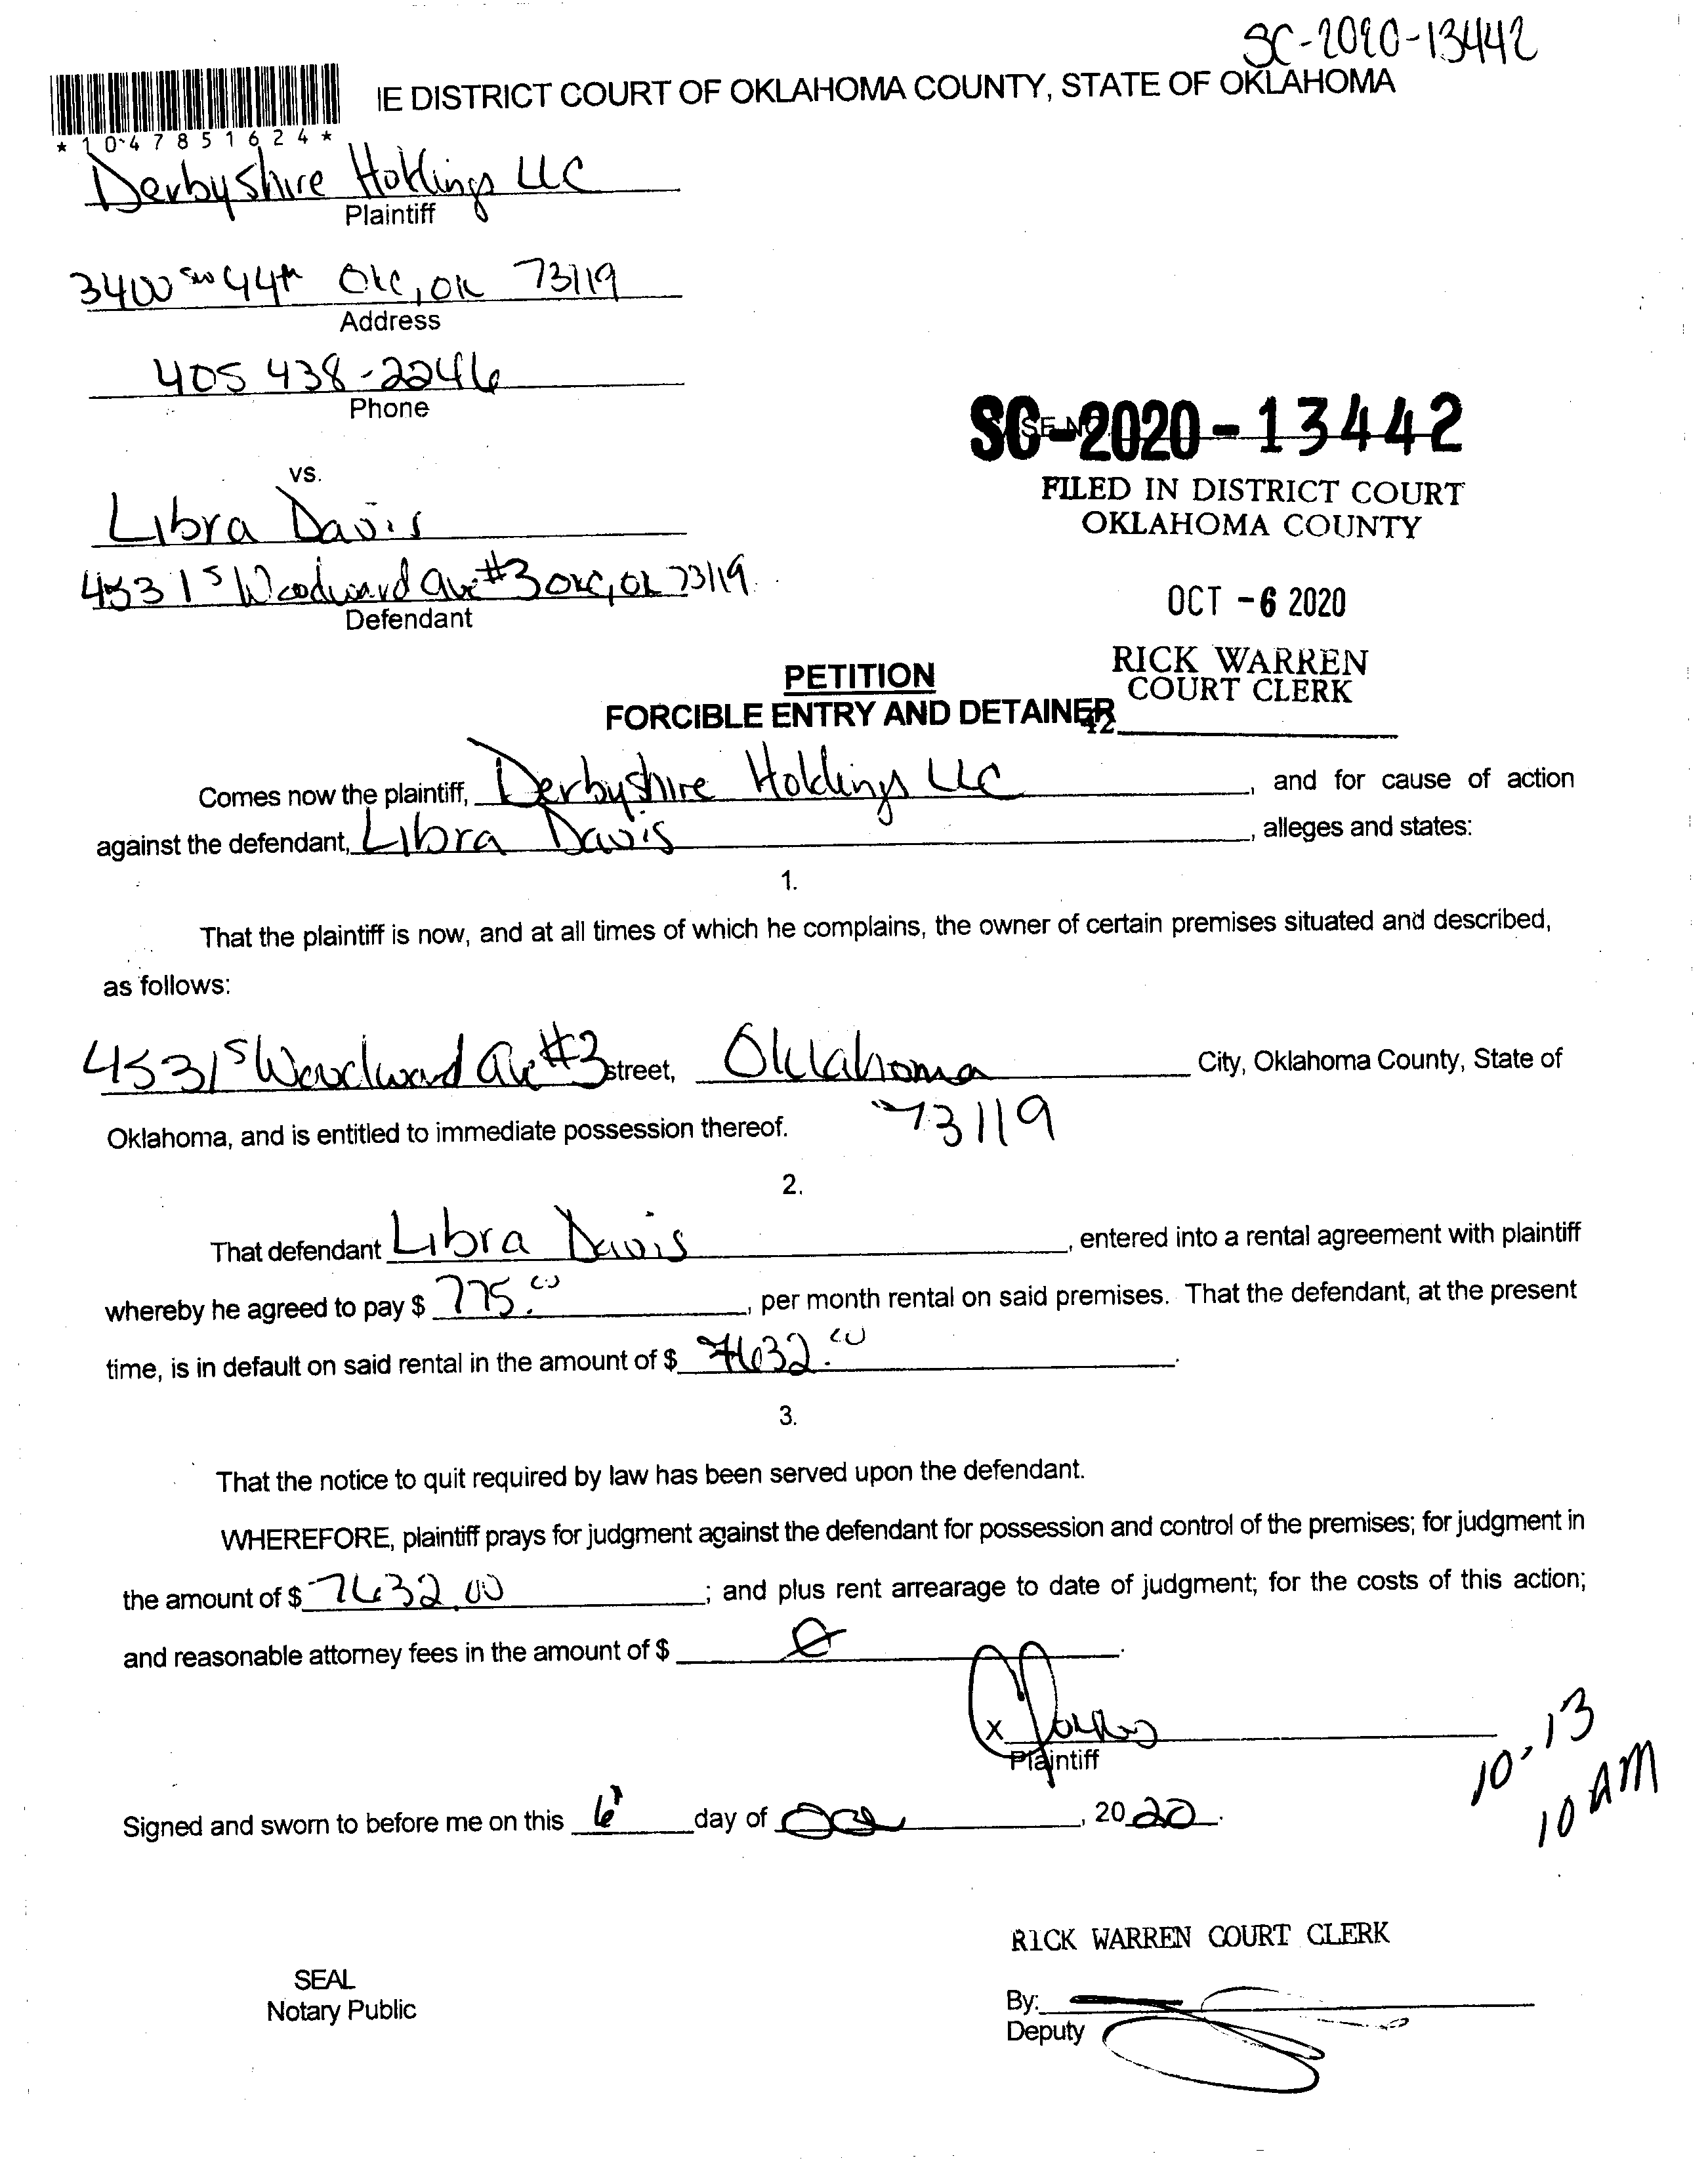 SC-2020-13442
IE DISTRICT COURT OF OKLAHOMA COUNTY, STATE OF OKLAHOMA
* 1 0 4 7 8 5 1 6 2 4 *
Derbyshire Holdings LLC
Plaintiff
3400 SW 44th OKC, OK 73119
Address
405 438-2246
Phone
SC-2020-13442
FILED IN DISTRICT COURT
OKLAHOMA COUNTY
OCT -6 2020
RICK WARREN
COURT CLERK
42
vs.
Libra Davis
4531 S Woodward Ave #3 OKC, OK 73119
Defendant
PETITION
FORCIBLE ENTRY AND DETAINER
Comes now the plaintiff, Derbyshire Holdings LLC, and for cause of action
against the defendant, Libra Davis, alleges and states:
1.
That the plaintiff is now, and at all times of which he complains, the owner of certain premises situated and described,
as follows:
4531 S Woodward Ave #3 street, Oklahoma City, Oklahoma County, State of
73119
Oklahoma, and is entitled to immediate possession thereof.
2.
That defendant Libra Davis, entered into a rental agreement with plaintiff
whereby he agreed to pay $ 775.00, per month rental on said premises. That the defendant, at the present
time, is in default on said rental in the amount of $ 7632.00.
3.
That the notice to quit required by law has been served upon the defendant.
WHEREFORE, plaintiff prays for judgment against the defendant for possession and control of the premises; for judgment in
the amount of $ 7632.00; and plus rent arrearage to date of judgment; for the costs of this action;
and reasonable attorney fees in the amount of $
x
Plaintiff
10-13
10 AM
Signed and sworn to before me on this 6 day of Oct, 2020.
RICK WARREN COURT CLERK
SEAL
Notary Public
By:
Deputy